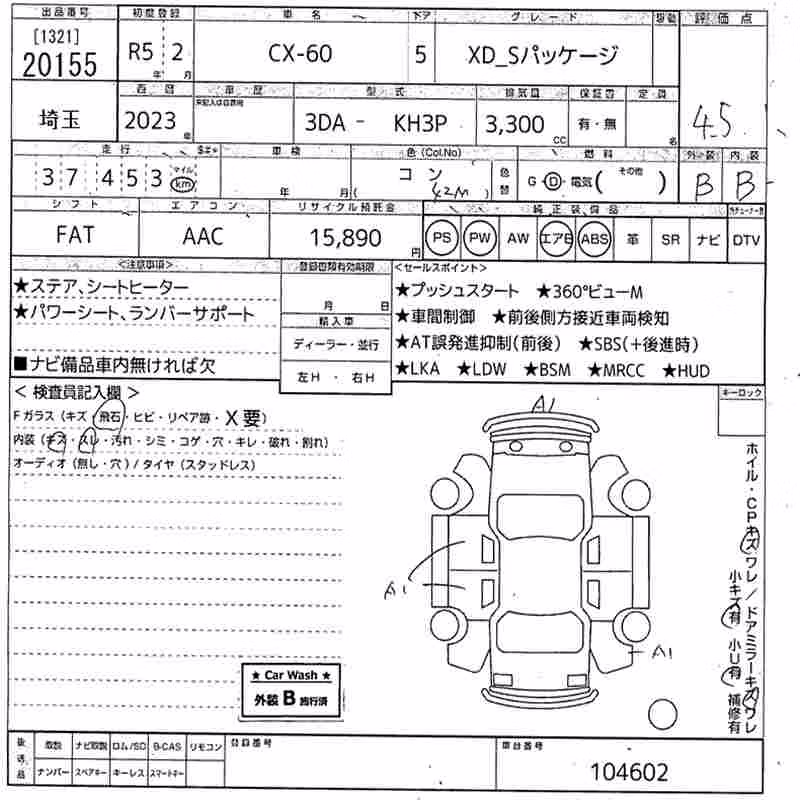 出品番号 初度登録 車名 ドア グレード 評価点
[1321]
20155 R5 2 CX-60 5 XD_Sパッケージ
年 月
西暦 車歴 型式 排気量 保証書 定員
未記入は自家用
埼玉 2023年 3DA - KH3P 3,300cc 有・無 名 4.5
走行 車検 色(Col.No) 燃料 外装 内装
37453 マイル km 年 月 コン (42M) 色替 G・D・電気( その他 ) B B
シフト エアコン リサイクル預託金 純正装備品
FAT AAC 15,890円 PS PW AW エアB ABS 革 SR ナビ DTV
<注意事項> 登録書類有効期限 <セールスポイント>
★ステア、シートヒーター
★パワーシート、ランバーサポート
■ナビ備品車内無ければ欠
月 日
輸入車
ディーラー・並行
左H ・ 右H
★プッシュスタート ★360°ビューM
★車間制御 ★前後側方接近車両検知
★AT誤発進抑制(前後) ★SBS(+後進時)
★LKA ★LDW ★BSM ★MRCC ★HUD
<検査員記入欄> キーロック
Fガラス(キズ・飛石・ヒビ・リペア跡・X要)
内装(キズ・スレ・汚れ・シミ・コゲ・穴・キレ・破れ・割れ)
オーディオ(無し・穴)/タイヤ(スタッドレス)
A1
A1
A1
ホイル・CPキズワレ/ドアミラーキズワレ
小キズ有 小U有 補修有
★ Car Wash ★
外装 B 施行済
後送品 取説 ナビ取説 ロム/SD B-CAS リモコン 登録番号 車台番号
ナンバー スペアキー キーレス スマートキー
104602